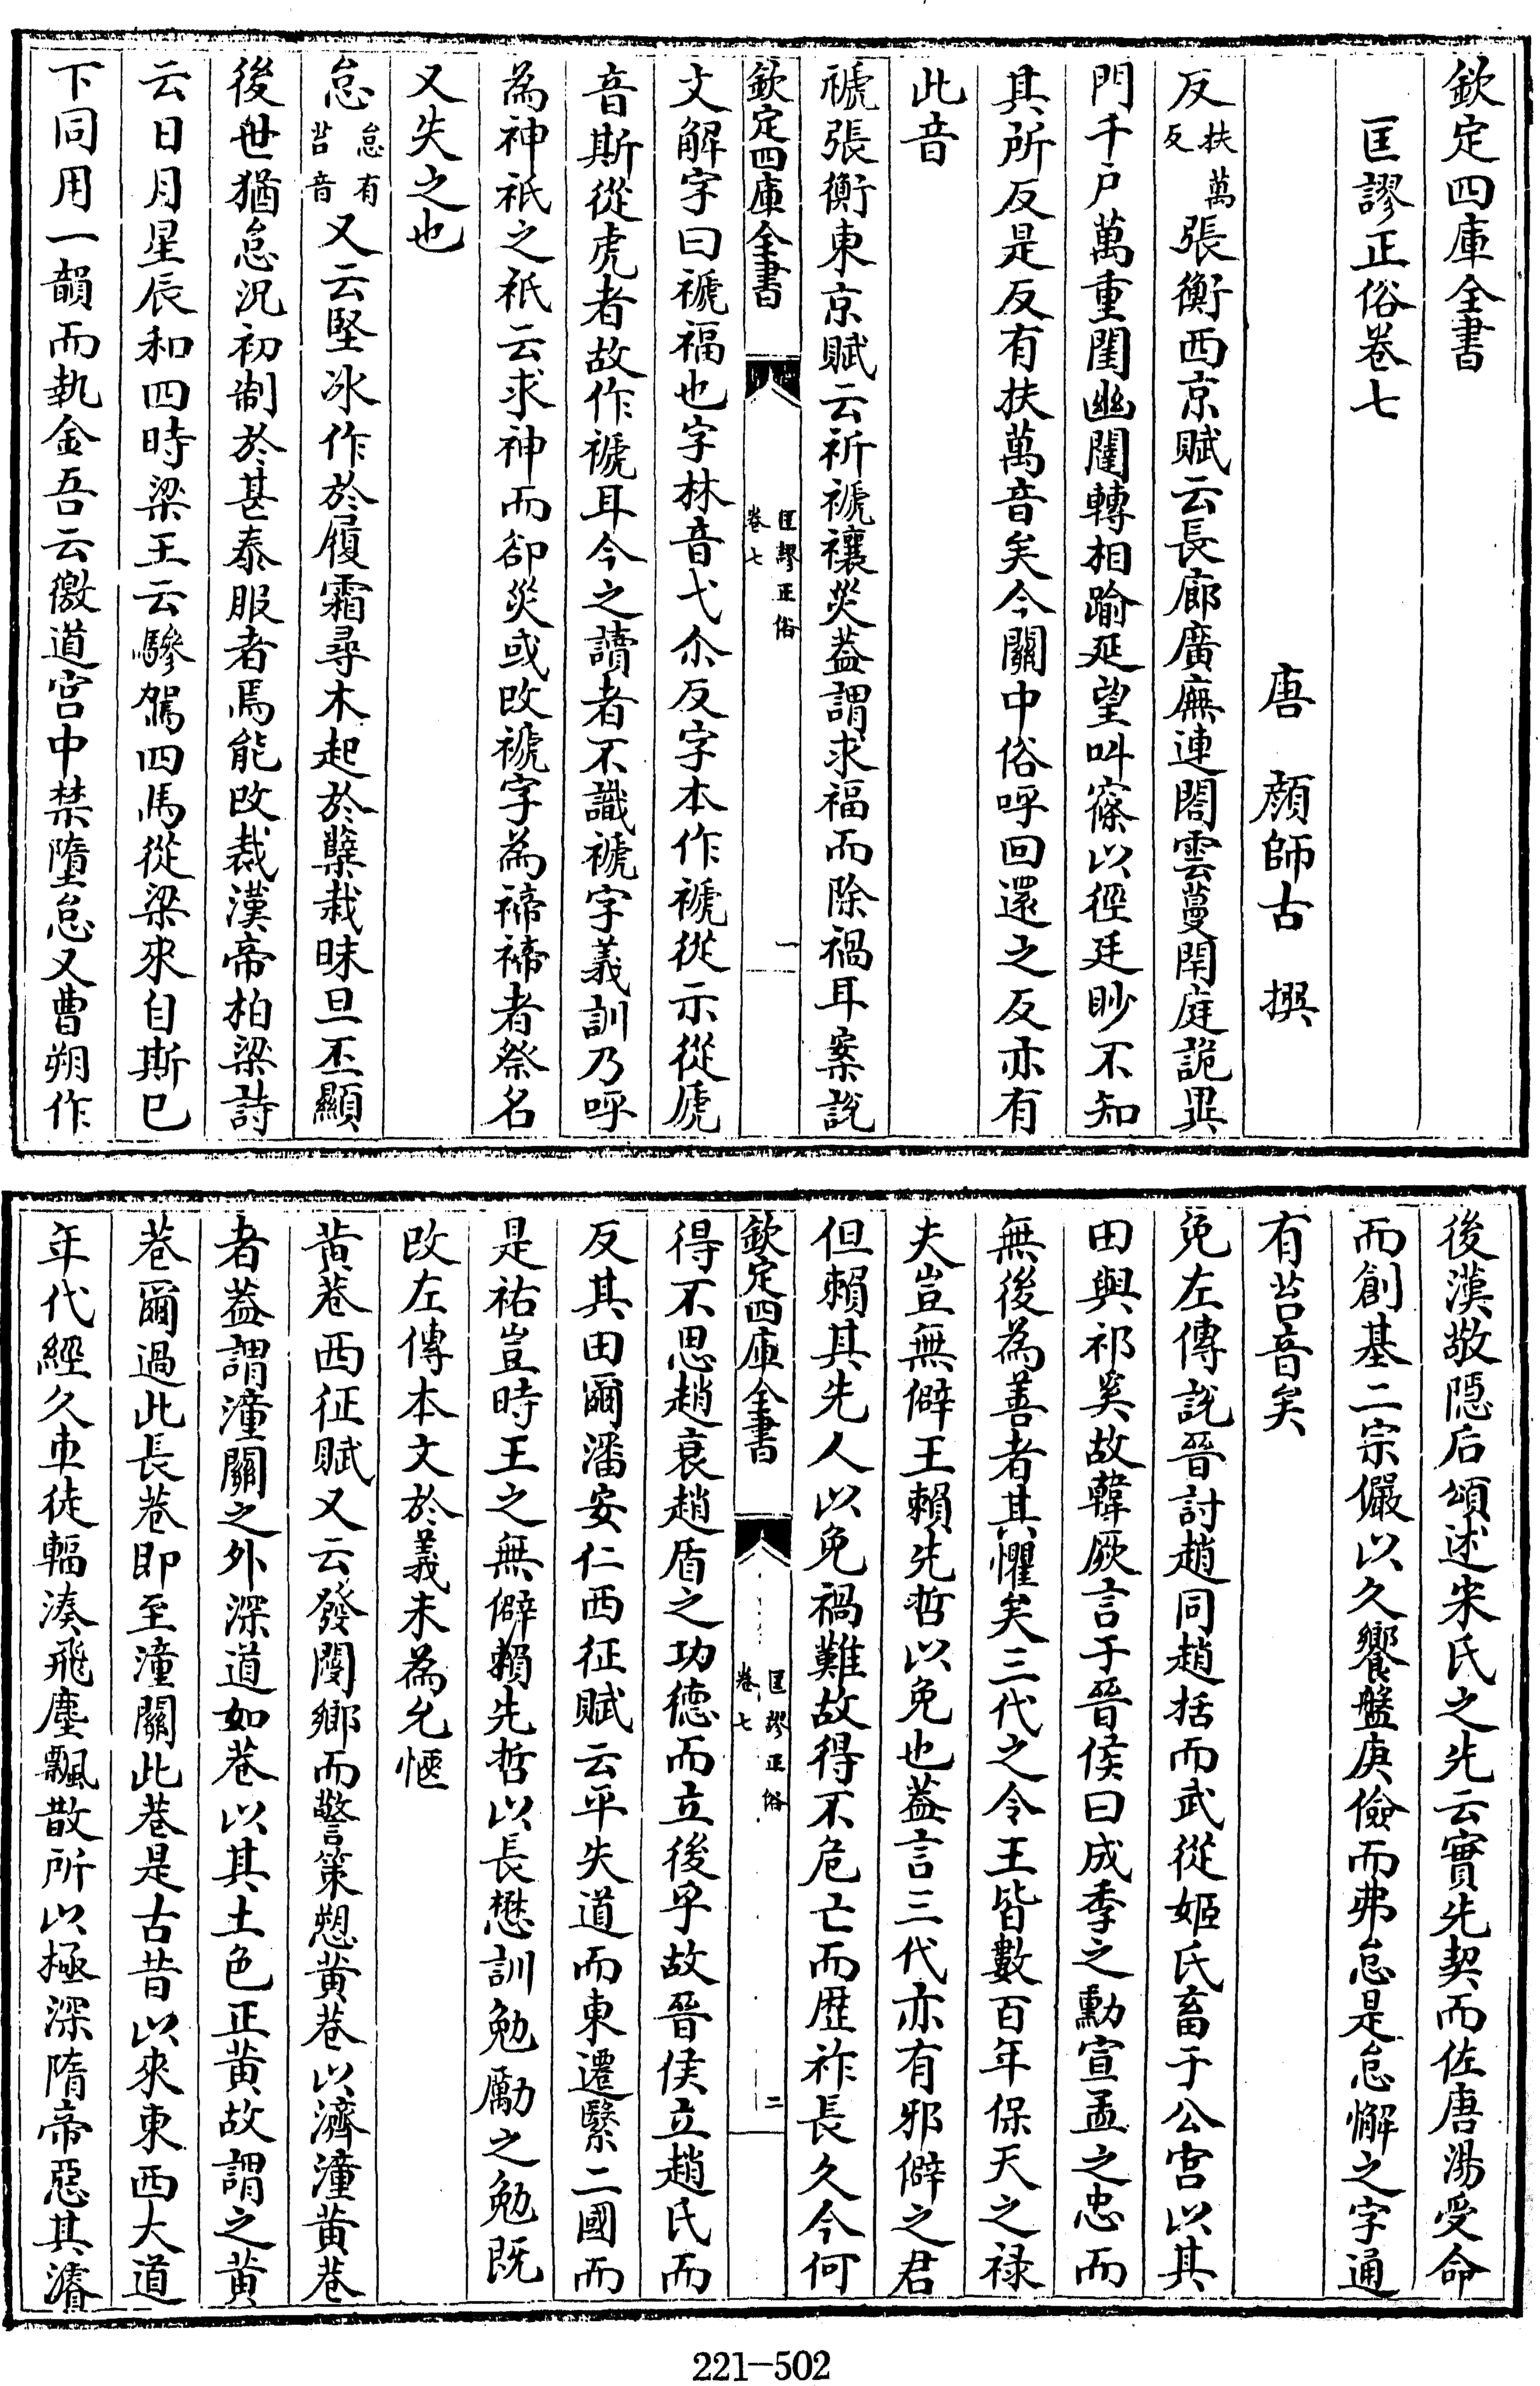 欽定四庫全書
匡謬正俗卷七
唐 顔師古 撰
反扶萬反張衡西京賦云長廊廣廡連閣雲蔓閈庭詭異
門千户萬重閨幽闥轉相踰延望叫窱以徑廷眇不知
其所反是反有扶萬音矣今關中俗呼回還之反亦有
此音
禠張衡東京賦云祈禠禳災葢謂求福而除禍耳案説
欽定四庫全書 匡謬正俗 卷七 一
文解字曰禠福也字林音弋尒反字本作禠從示從虒
音斯從虎者故作禠耳今之讀者不識禠字義訓乃呼
為神祇之祇云求神而卻災或改禠字為禘禘者祭名
又失之也
怠怠有苔音又云堅冰作於履霜尋木起於櫱栽昧旦丕顯
後世猶怠況初制於甚泰服者焉能改裁漢帝柏梁詩
云日月星辰和四時梁王云驂駕四馬從梁來自斯巳
下同用一韻而執金吾云徼道宫中禁墮怠又曹朔作
後漢敬隠后頌述宋氏之先云實先契而佐唐湯受命
而創基二宗儼以久饗盤庚儉而弗怠是怠懈之字通
有苔音矣
免左傳説晉討趙同趙括而武從姬氏畜于公宫以其
田與祁奚故韓厥言于晉侯曰成季之勳宣孟之忠而
無後為善者其懼矣三代之令王皆數百年保天之禄
夫豈無僻王賴先哲以免也葢言三代亦有邪僻之君
但賴其先人以免禍難故得不危亡而歴祚長久今何
欽定四庫全書 匡謬正俗 卷七 二
得不思趙衰趙盾之功德而立後乎故晉侯立趙氏而
反其田爾潘安仁西征賦云平失道而東遷繄二國而
是祐豈時王之無僻賴先哲以長懋訓勉勵之勉既
改左傳本文於義未為允愜
黄巷西征賦又云發閿鄉而警策愬黄巷以濟潼黄巷
者葢謂潼關之外深道如巷以其土色正黄故謂之黄
巷爾過此長巷即至潼關此巷是古昔以來東西大道
年代經久車徒輻湊飛塵飄散所以極深隋帝惡其濬
221-502